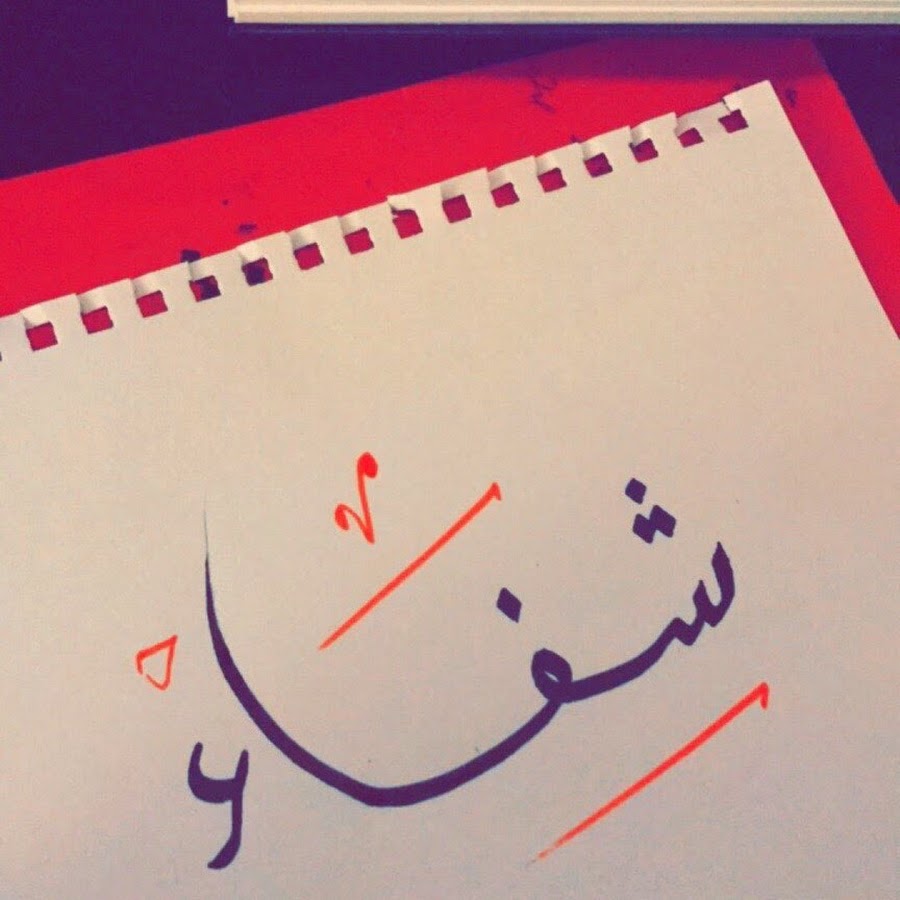 شفاء